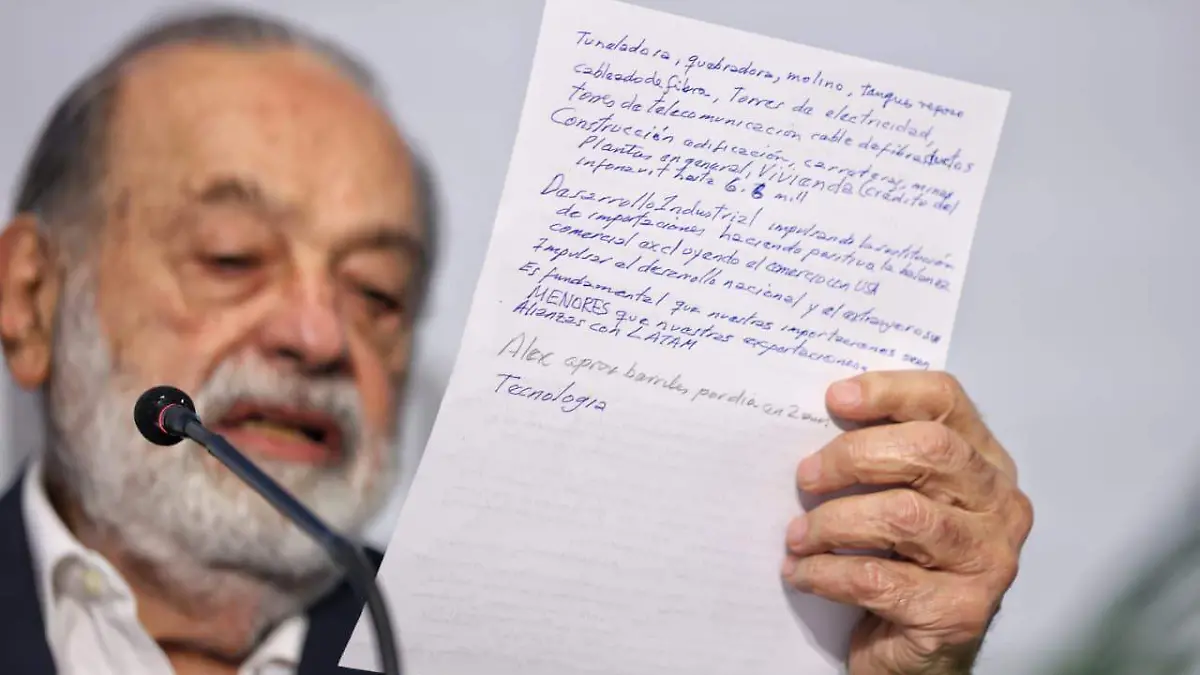 Tuneladora, quebradora, molino, tanques repose
cableado de fibra, Torres de electricidad,
torres de telecomunicación cable de fibra ductos
Construcción edificación, carreteras, minas
Plantas en general, Vivienda (crédito del
infonavit hasta 6.6 mill
Desarrollo Industrial impulsando la sustitución
de importaciones haciendo positiva la balanza
comercial excluyendo el comercio con USA
Impulsar el desarrollo nacional y el extranjero
Es fundamental que nuestras importaciones sean
MENORES que nuestras exportaciones.
Alianzas con LATAM
Alex aprox barriles por día en 2
Tecnología